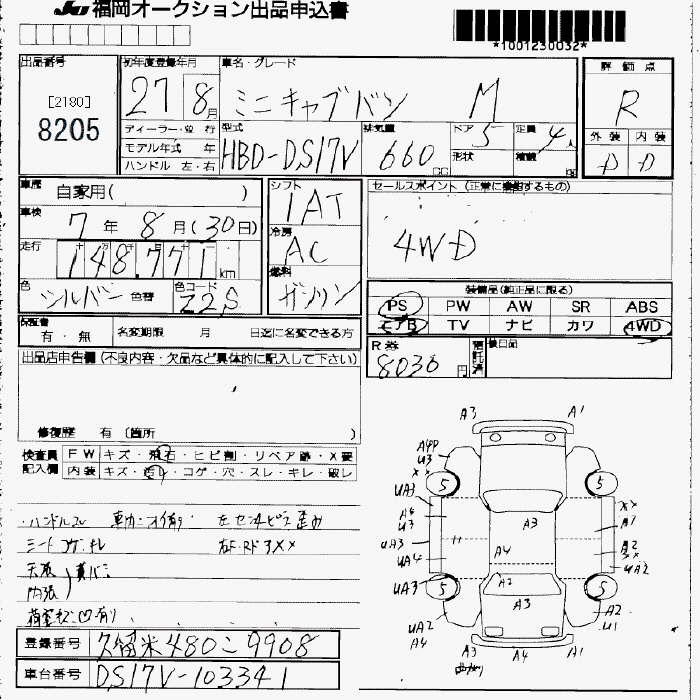 JU 福岡オークション出品申込書
*1001230032*
出品番号
[2180]
8205
初年度登録年月
27 8月
車名・グレード
ミニキャブバン M
評価点
R
外装 内装
D D
ディーラー・並行
モデル年式 年
ハンドル 左・右
型式
HBD-DS17V
排気量
660 cc
ドア 5
定員 4人
形状
積載
車歴
自家用( )
車検
7年 8月(30日)
走行
148,771 km
色
シルバー 色替
色コード
Z2S
シフト
1AT
冷房
AC
燃料
ガソリン
セールスポイント (正常に機能するもの)
4WD
装備品(純正品に限る)
PS PW AW SR ABS
エアB TV ナビ カワ 4WD
保証書
有・無
名変期限 月 日迄に名変できる方
R券
8030円
預託済
後日品
出品店申告欄 (不良内容・欠品など具体的に記入して下さい)
修復歴 有 〔箇所 )
検査員
記入欄
FW キズ・飛石・ヒビ割・リペア跡・X要
内装 キズ・汚レ・コゲ・穴・スレ・キレ・破レ
・ハンドルスレ
歪み
シートコゲ・キレ
天張
内張
登録番号 久留米480こ9908
車台番号 DS17V-103341
A3 A1
A4P
U3
XX
5 5
UA3
A4
U3
UA3
UA4
UA3
A3
A4
A2
A3
XX
A1
A2
XX
UA2
5 5
UA2
A4
A2
U1
A3 A4 A1